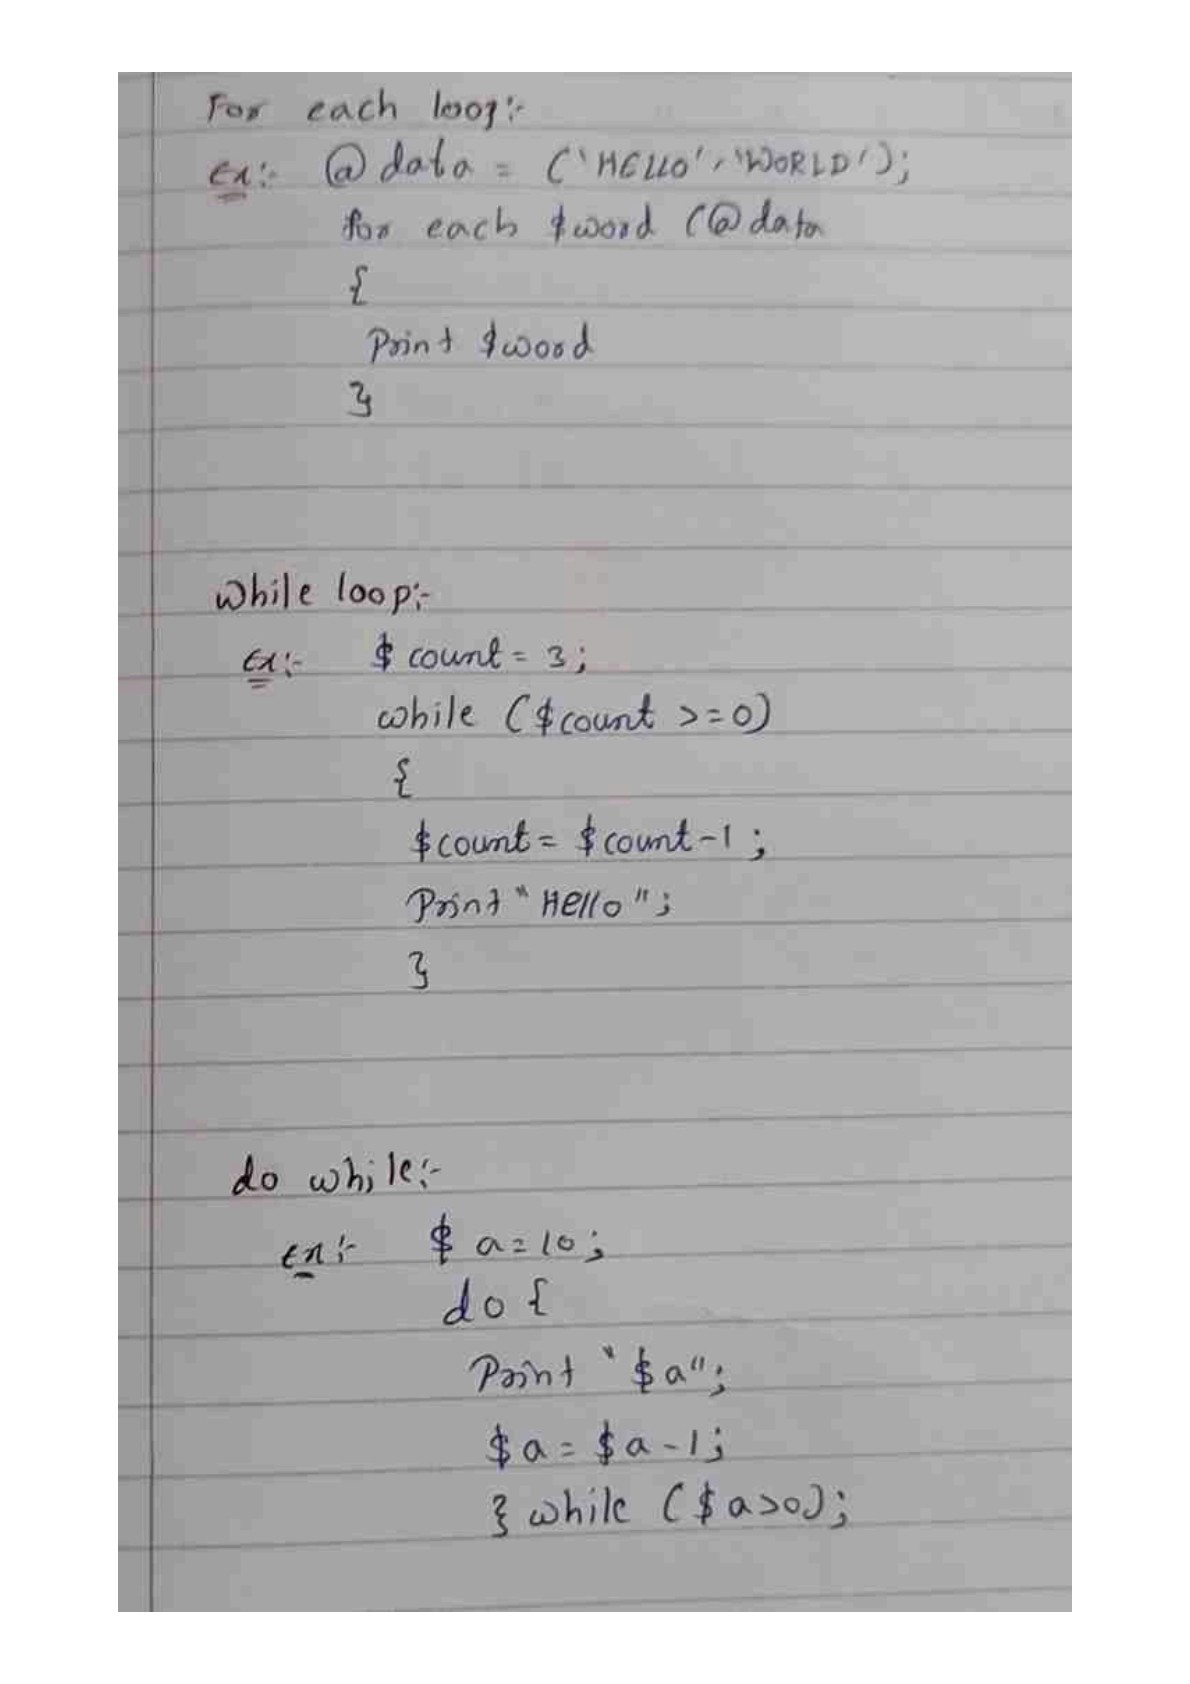 For each loop:-
Ex:- @data = ('HELLO', 'WORLD');
for each $word (@data
{
Print $word
}
While loop:-
Ex:- $count = 3;
while ($count >=0)
{
$count = $count-1;
Print "Hello";
}
do while:-
Ex:- $ a=10;
do {
Print "$a";
$a = $a-1;
} while ($a>0);